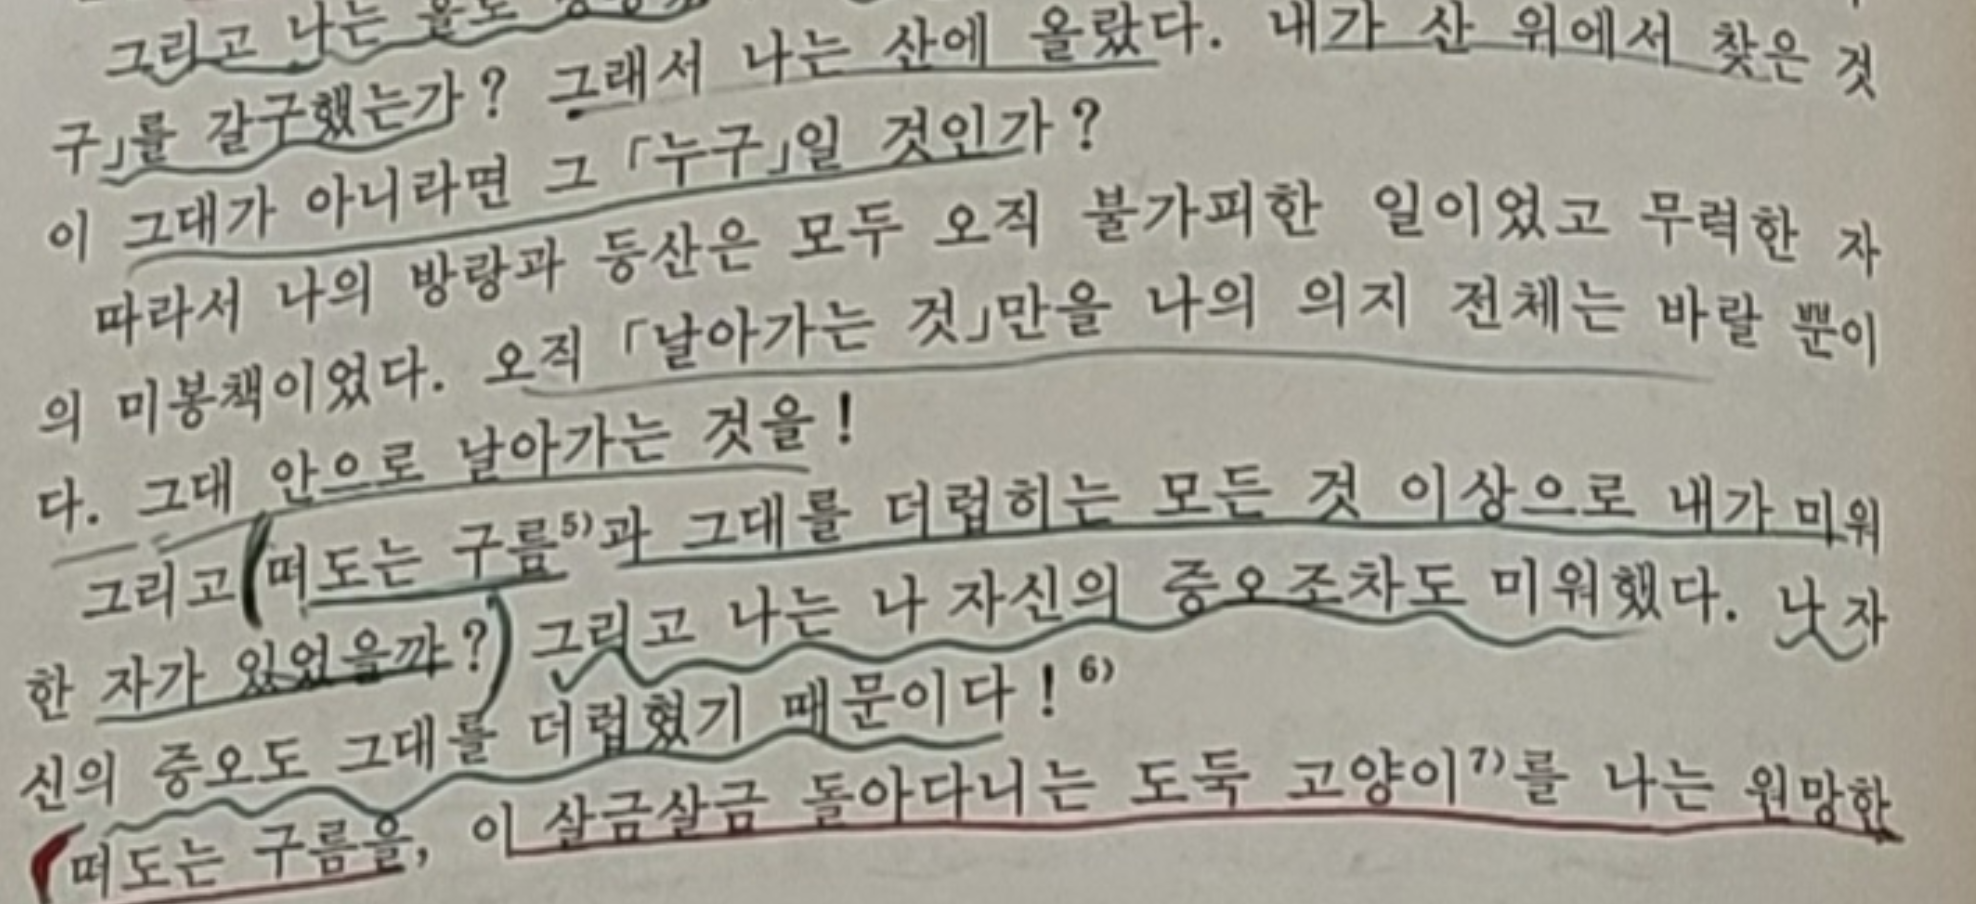 그리고 나는
구」를 갈구했는가? 그래서 나는 산에 올랐다. 내가 산 위에서 찾은 것
이 그대가 아니라면 그 「누구」일 것인가?
따라서 나의 방랑과 등산은 모두 오직 불가피한 일이었고 무력한 자
의 미봉책이었다. 오직 「날아가는 것」만을 나의 의지 전체는 바랄 뿐이
다. 그대 안으로 날아가는 것을!
그리고 떠도는 구름5)과 그대를 더럽히는 모든 것 이상으로 내가 미워
한 자가 있었을까? 그리고 나는 나 자신의 증오조차도 미워했다. 나 자
신의 증오도 그대를 더럽혔기 때문이다!6)
떠도는 구름을, 이 살금살금 돌아다니는 도둑 고양이7)를 나는 원망한